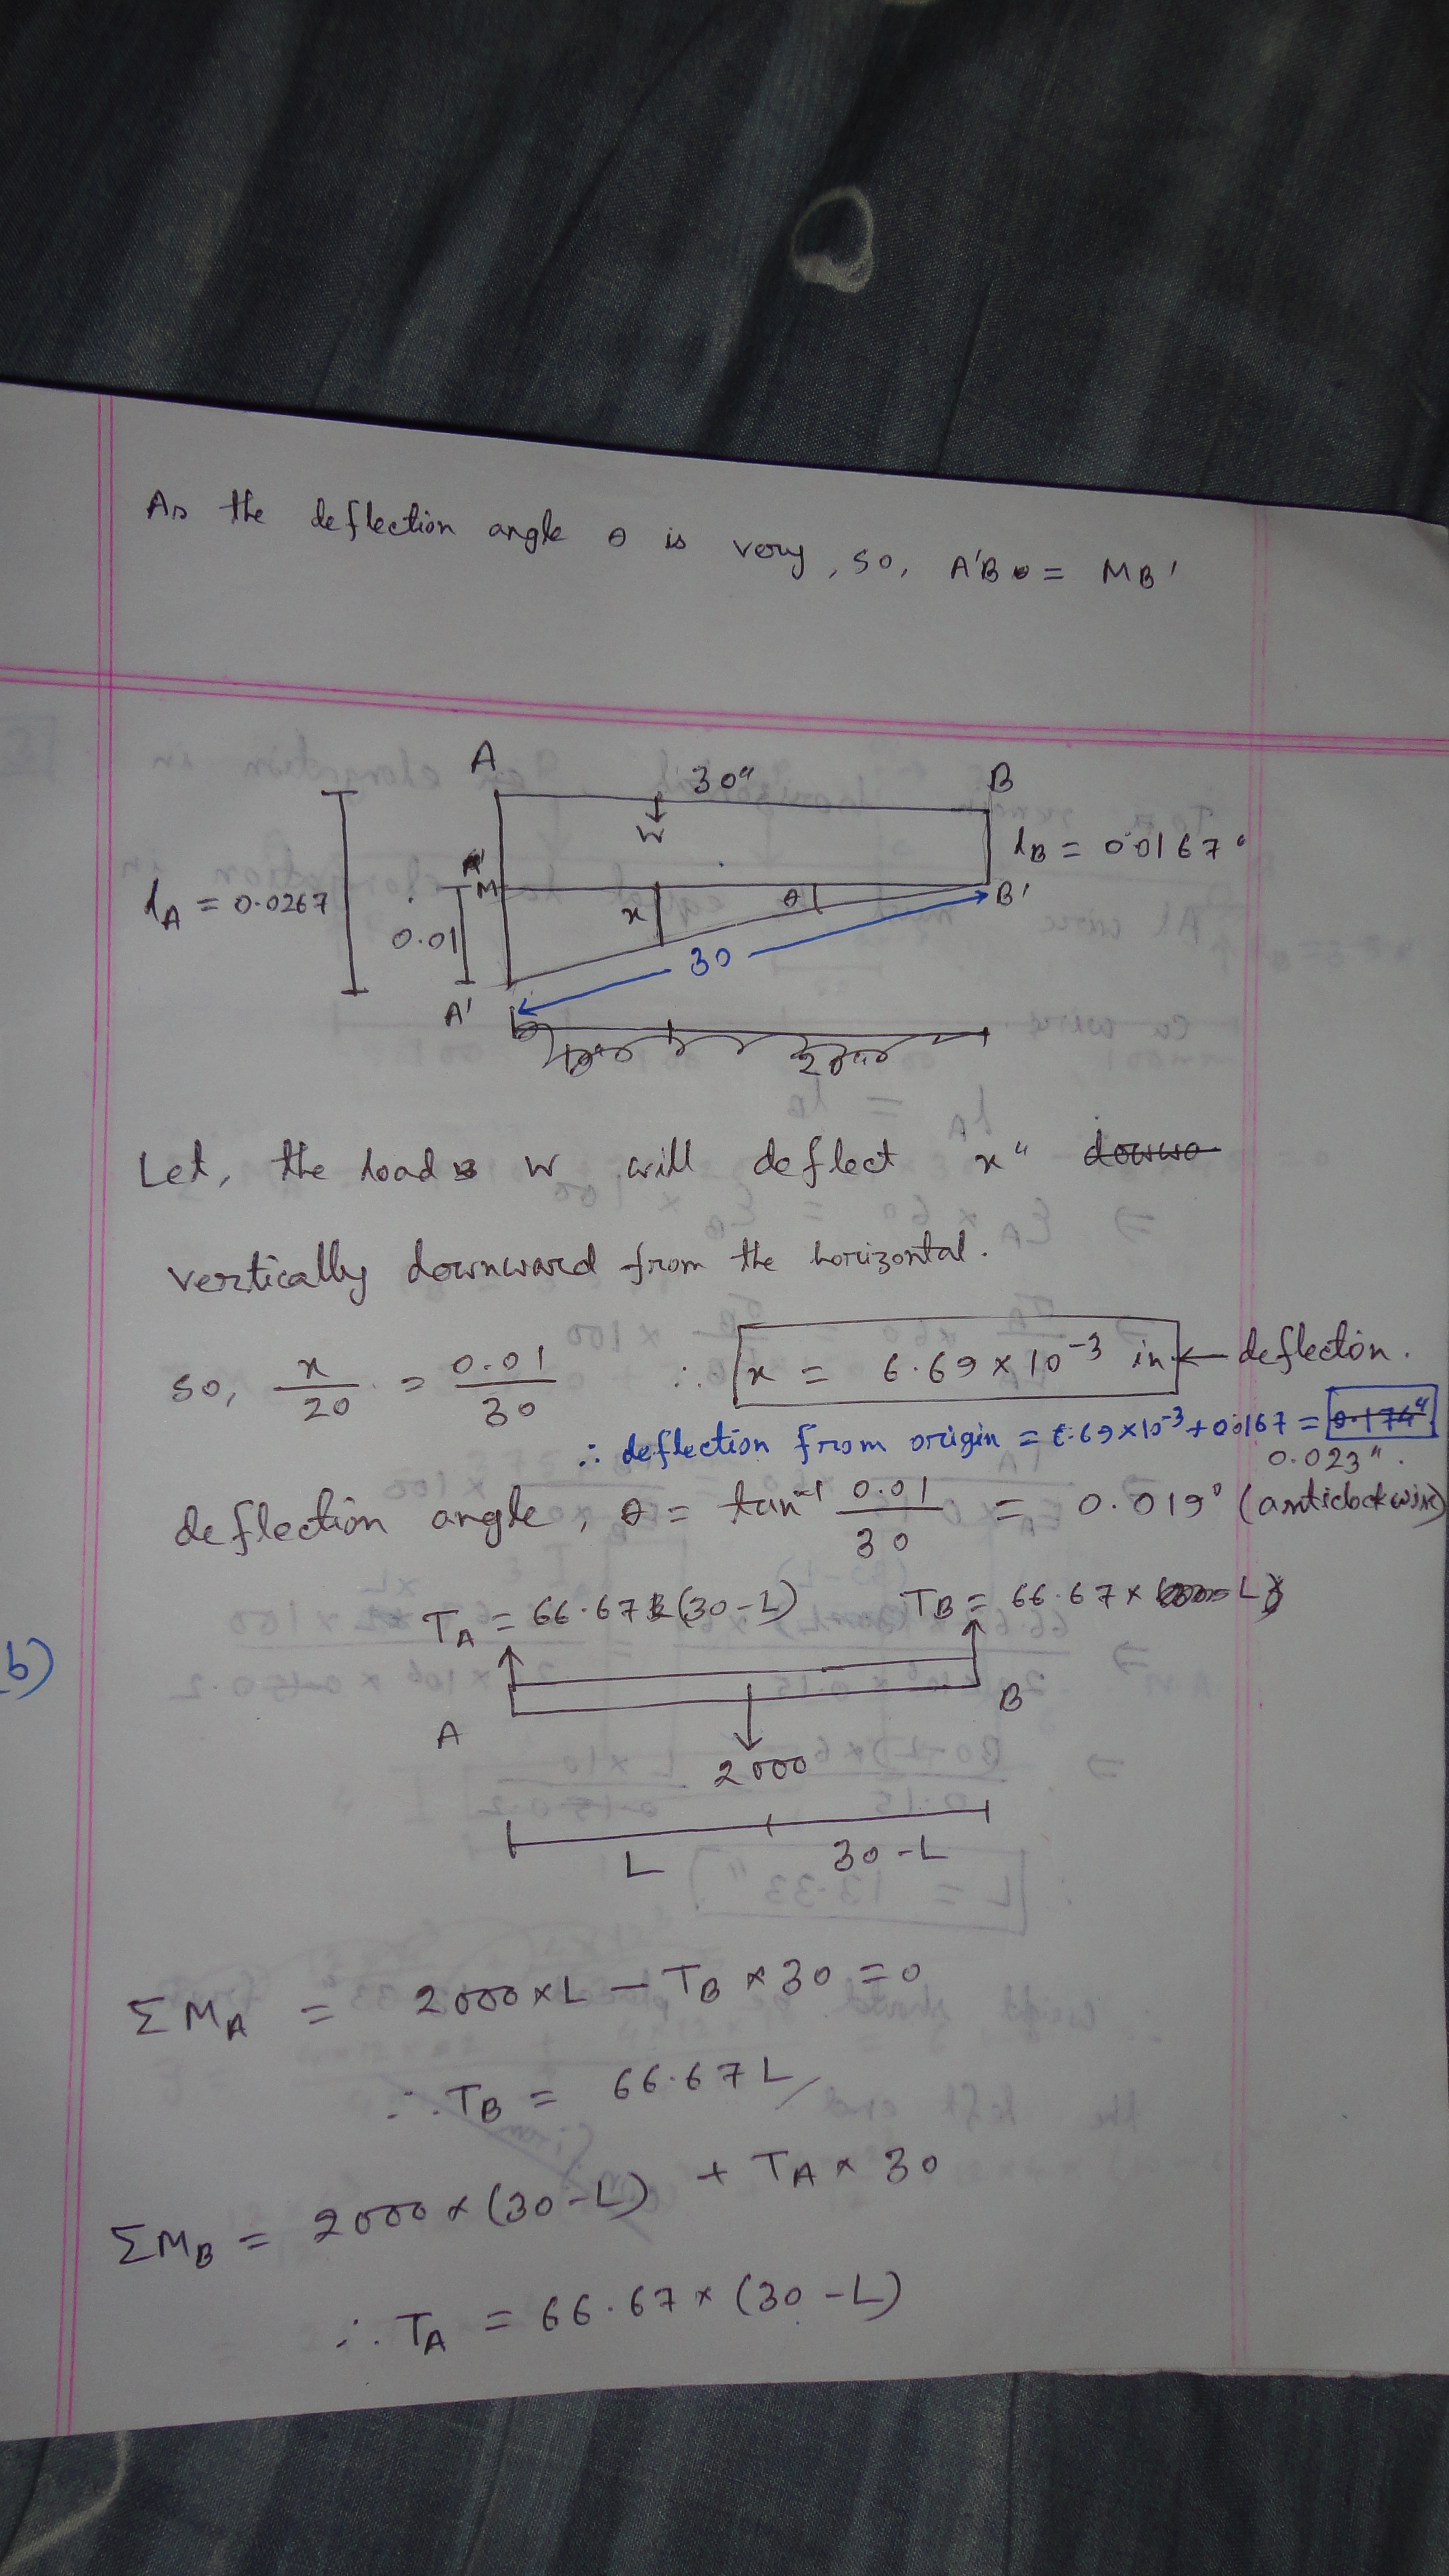 As the deflection angle θ is very, so, A'B = MB'
A 30" B
W
dA = 0.0267
M
0.01
x
θ
dB = 0.0167"
B'
30
A'
Let, the load W will deflect x" downwo
vertically downward from the horizontal.
so, x/20 = 0.01/30 ∴ x = 6.69 × 10^-3 in ← deflection.
∴ deflection from origin = 6.69×10^-3 + 0.0167 = 0.174"
0.023".
deflection angle, θ = tan^-1 0.01/30 = 0.019° (anticlockwise)
TA = 66.67 (30-L) TB = 66.67 × L
b)
A B
2000
L 30-L
ΣMA = 2000×L - TB × 30 = 0
∴ TB = 66.67 L
ΣMB = 2000 × (30-L) + TA × 30
∴ TA = 66.67 × (30-L)